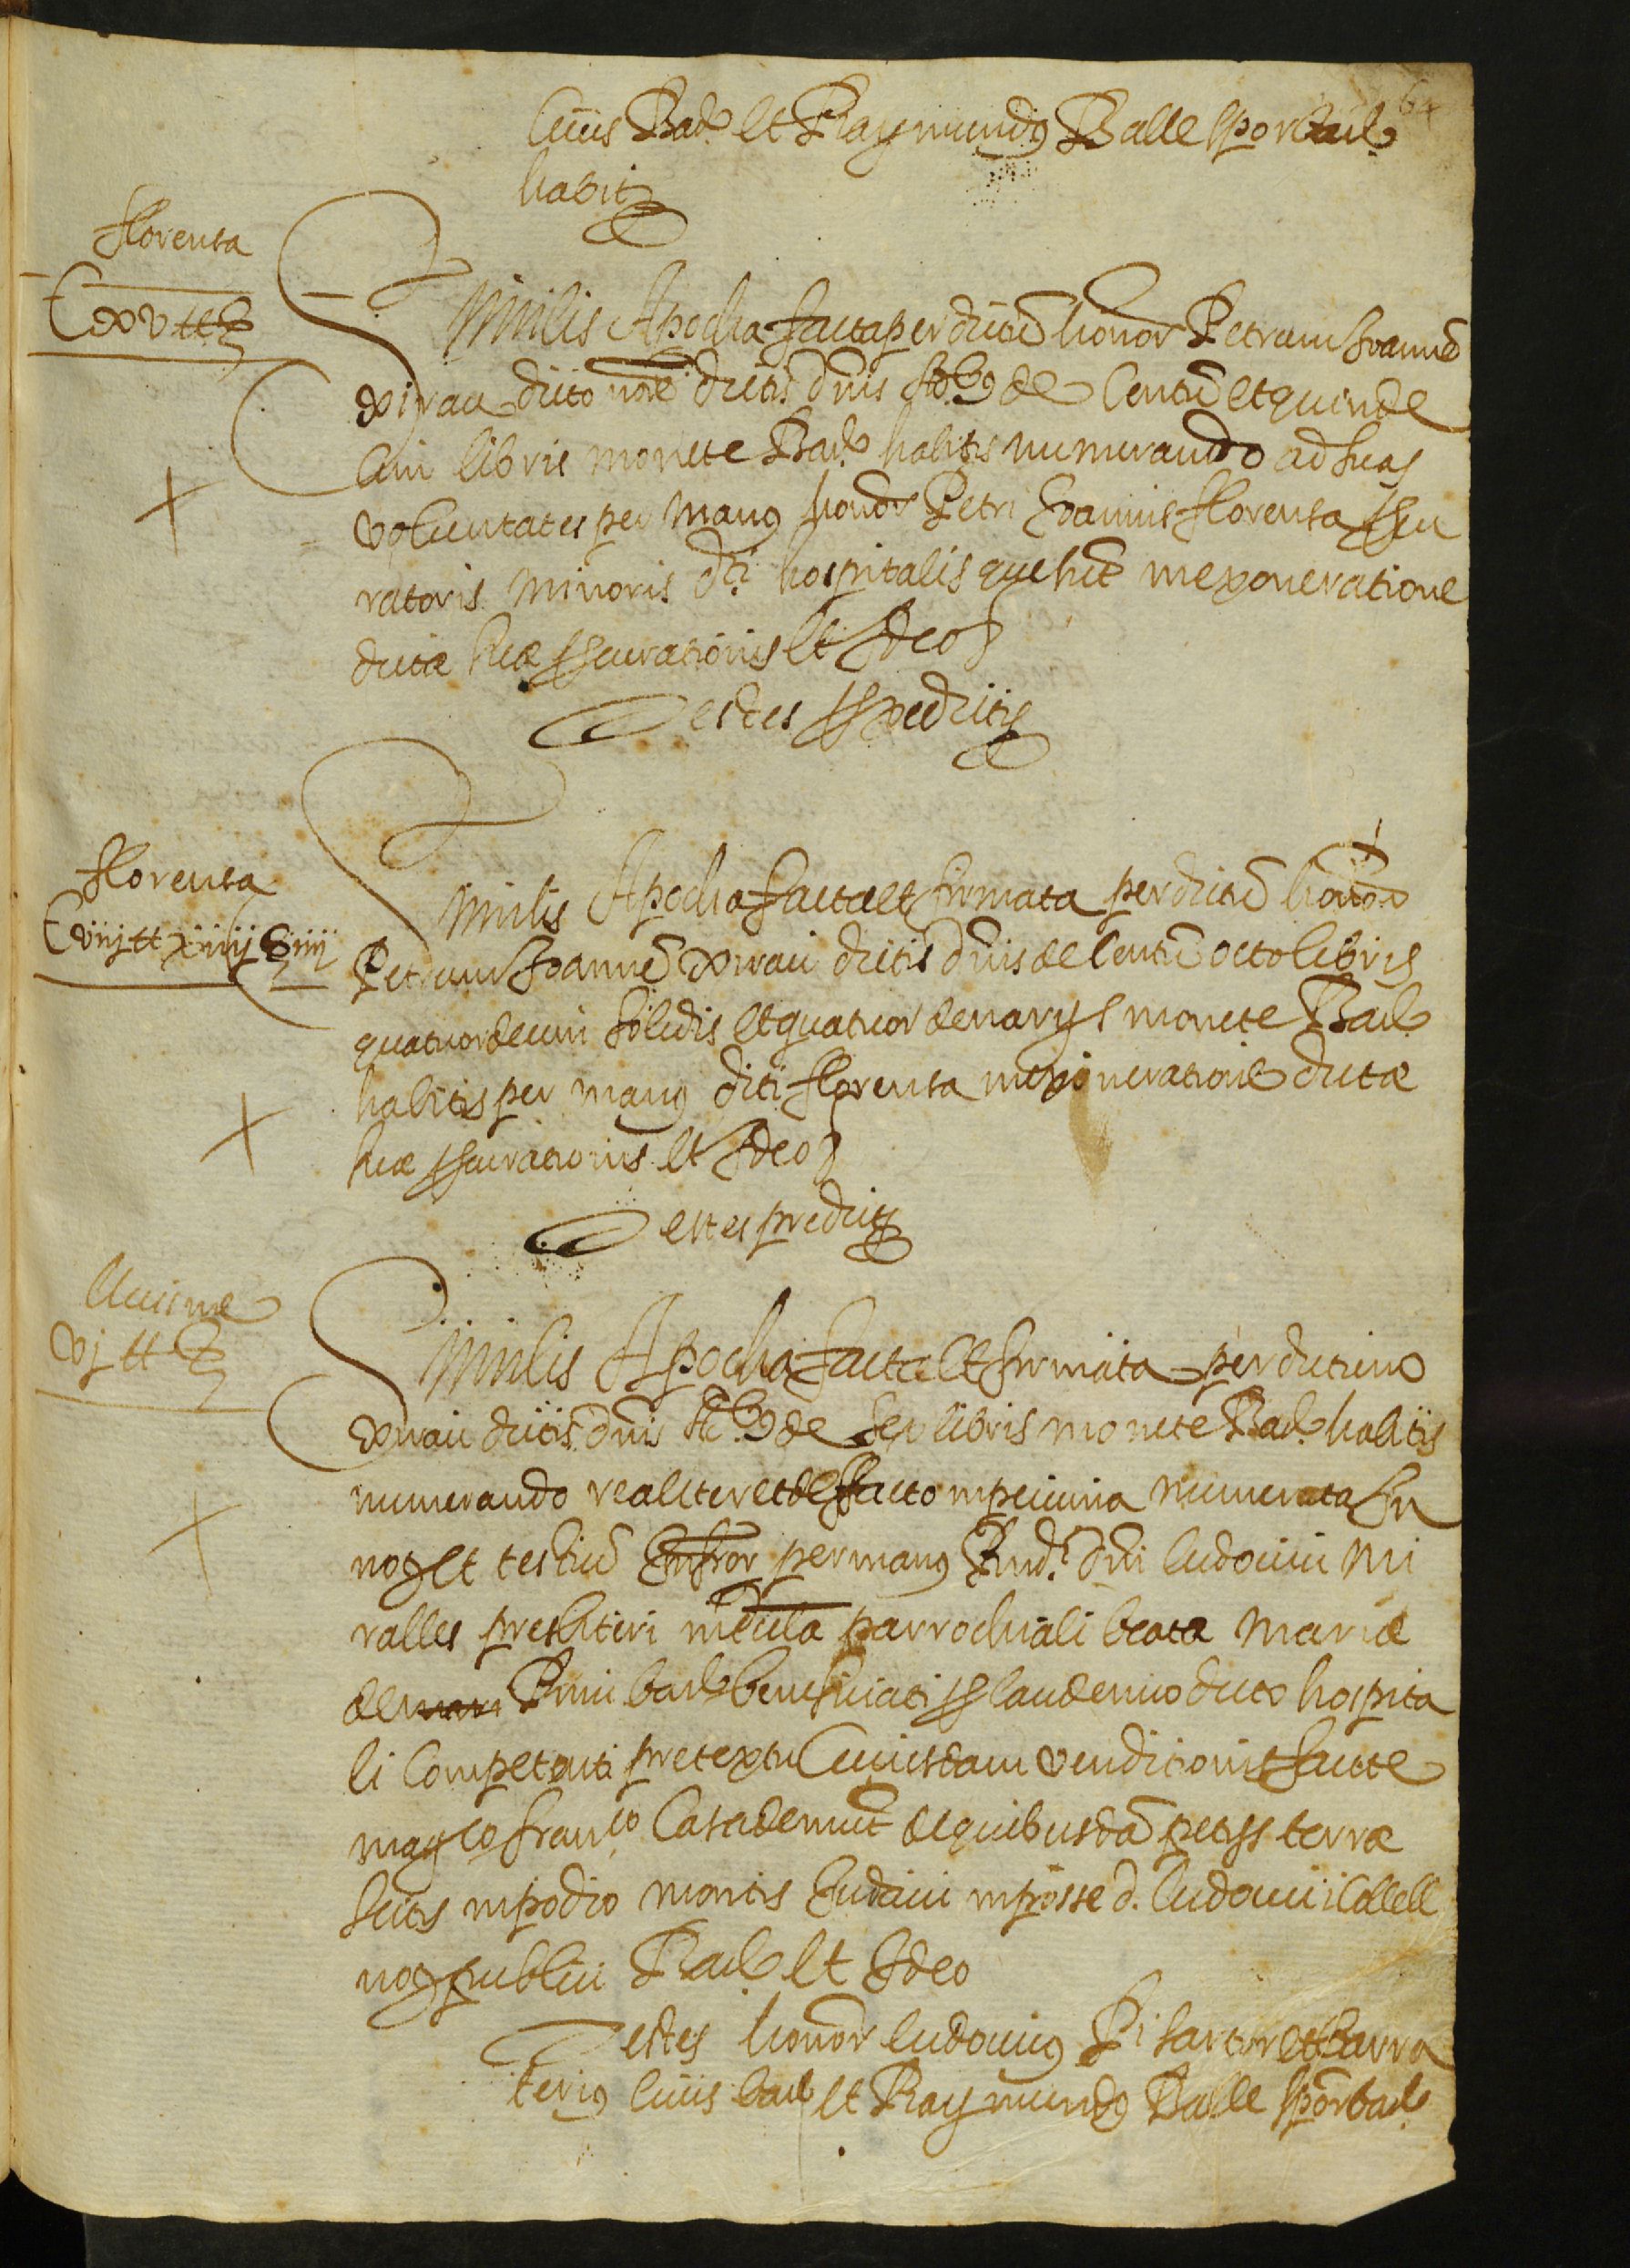 64
Civis Barᵉ et Raymundꝰ Balle spor barᵉ
habitꝭ
florensa
Cxv ℔ ß
Similis Apocha facta per dictũ honor Petrum Joannẽ
xirau dicto noīe dictis dn̄is Adᵇꝰ de Centũ et quinde
cim libris monete Barᵉ habitis numerando ad suas
voluntates per manꝰ honor Petri Joannis florensa procu
ratoris minoris dti hospitalis que sūt in exoneratione
dictæ suæ procurationis et Ideo ꝛ
Testes prædictis
florensa
Cviij ℔ xiiij ß iiij
Similis Apocha facta et firmata per dictũ honor
Petrum Joannẽ xirau dictis dn̄is de Centũ octo libris
quatuordecim solidis et quatuor denarys monete Barᵉ
habitis per manꝰ dicti florensa in exoneratione dictæ
suæ procurationis et Ideo ꝛ
Testes predictꝭ
vj ℔ ß
Similis Apocha facta et firmata per dictum
xirau dictis dn̄is Adᵇꝰ de sex libris monete Barᵉ habitis
numerando realiter et de facto in pecunia numerata In
noꝭ et testiũ Infror per manꝰ Rnd. dn̄i ludovici Mi
ralles presbiteri in ecclīa parrochiali beatæ Mariæ
de Pinu barᵉ beneficiati pro laudemio dicto hospita
li Competenti pretextu Cuiusdam venditionis facte
magᶜᵒ franᶜᵒ Casademunt de quibusdã petijs terræ
sitis in podio montis Judaici in posse d. ludovici Collell
noꝭ publici Barᵉ et Ideo
Testes honor ludovicꝰ Pi sartor et barra
teriꝰ civis barᵉ et Raymundꝰ Balle spor barᵉ